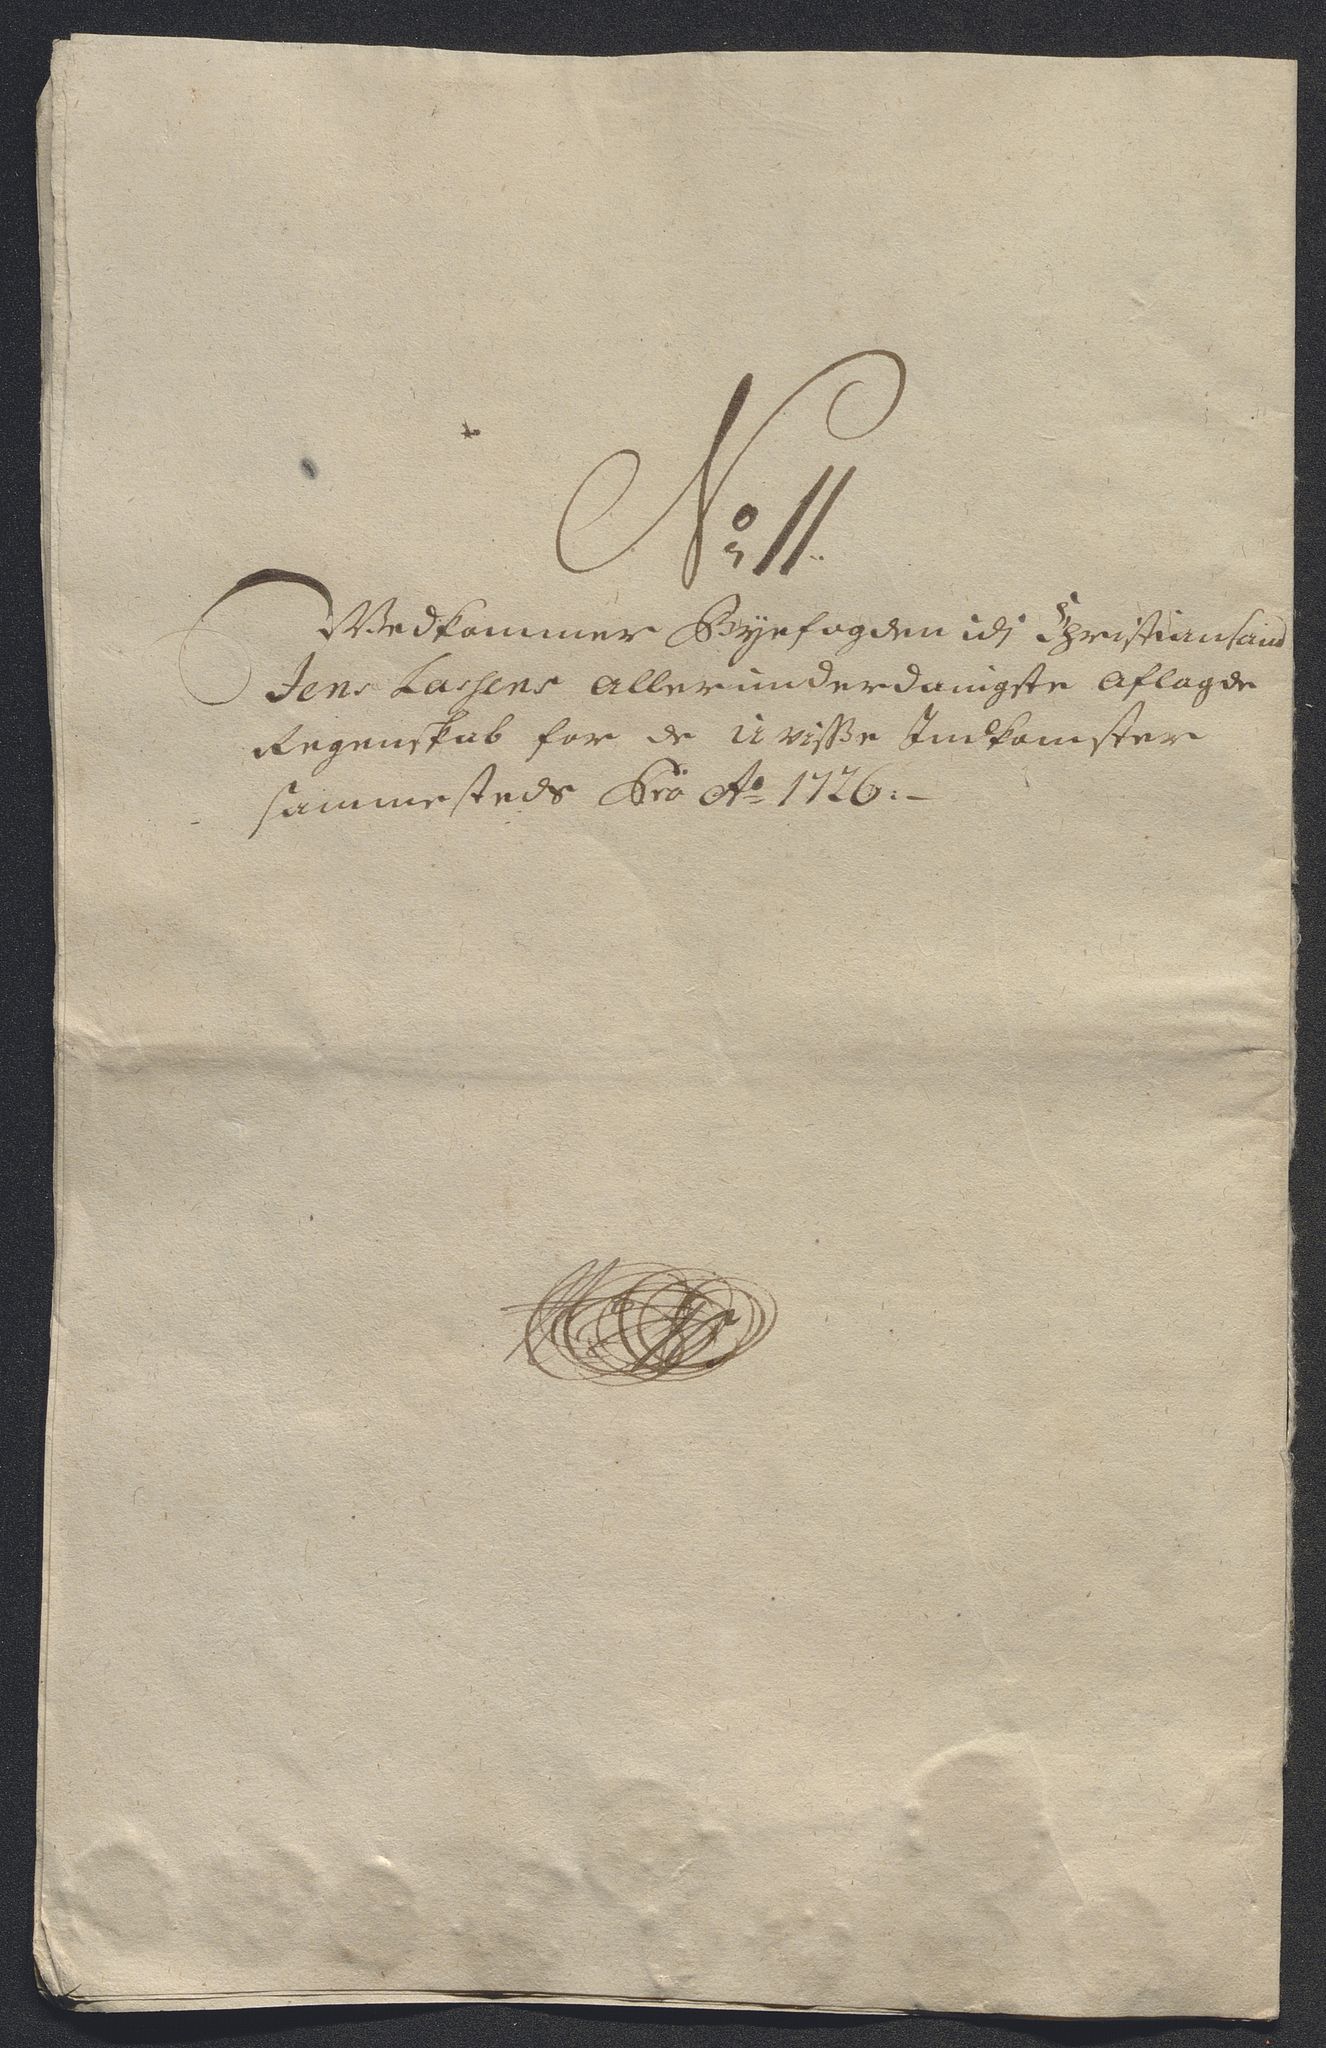 No 11.
Wedkommer Byefogden idj Christiansand
Jens Lassens allerunderdanigste aflagde
Regenskab for de uvisse Indkomster
sammesteds Pro Ao 1726:-